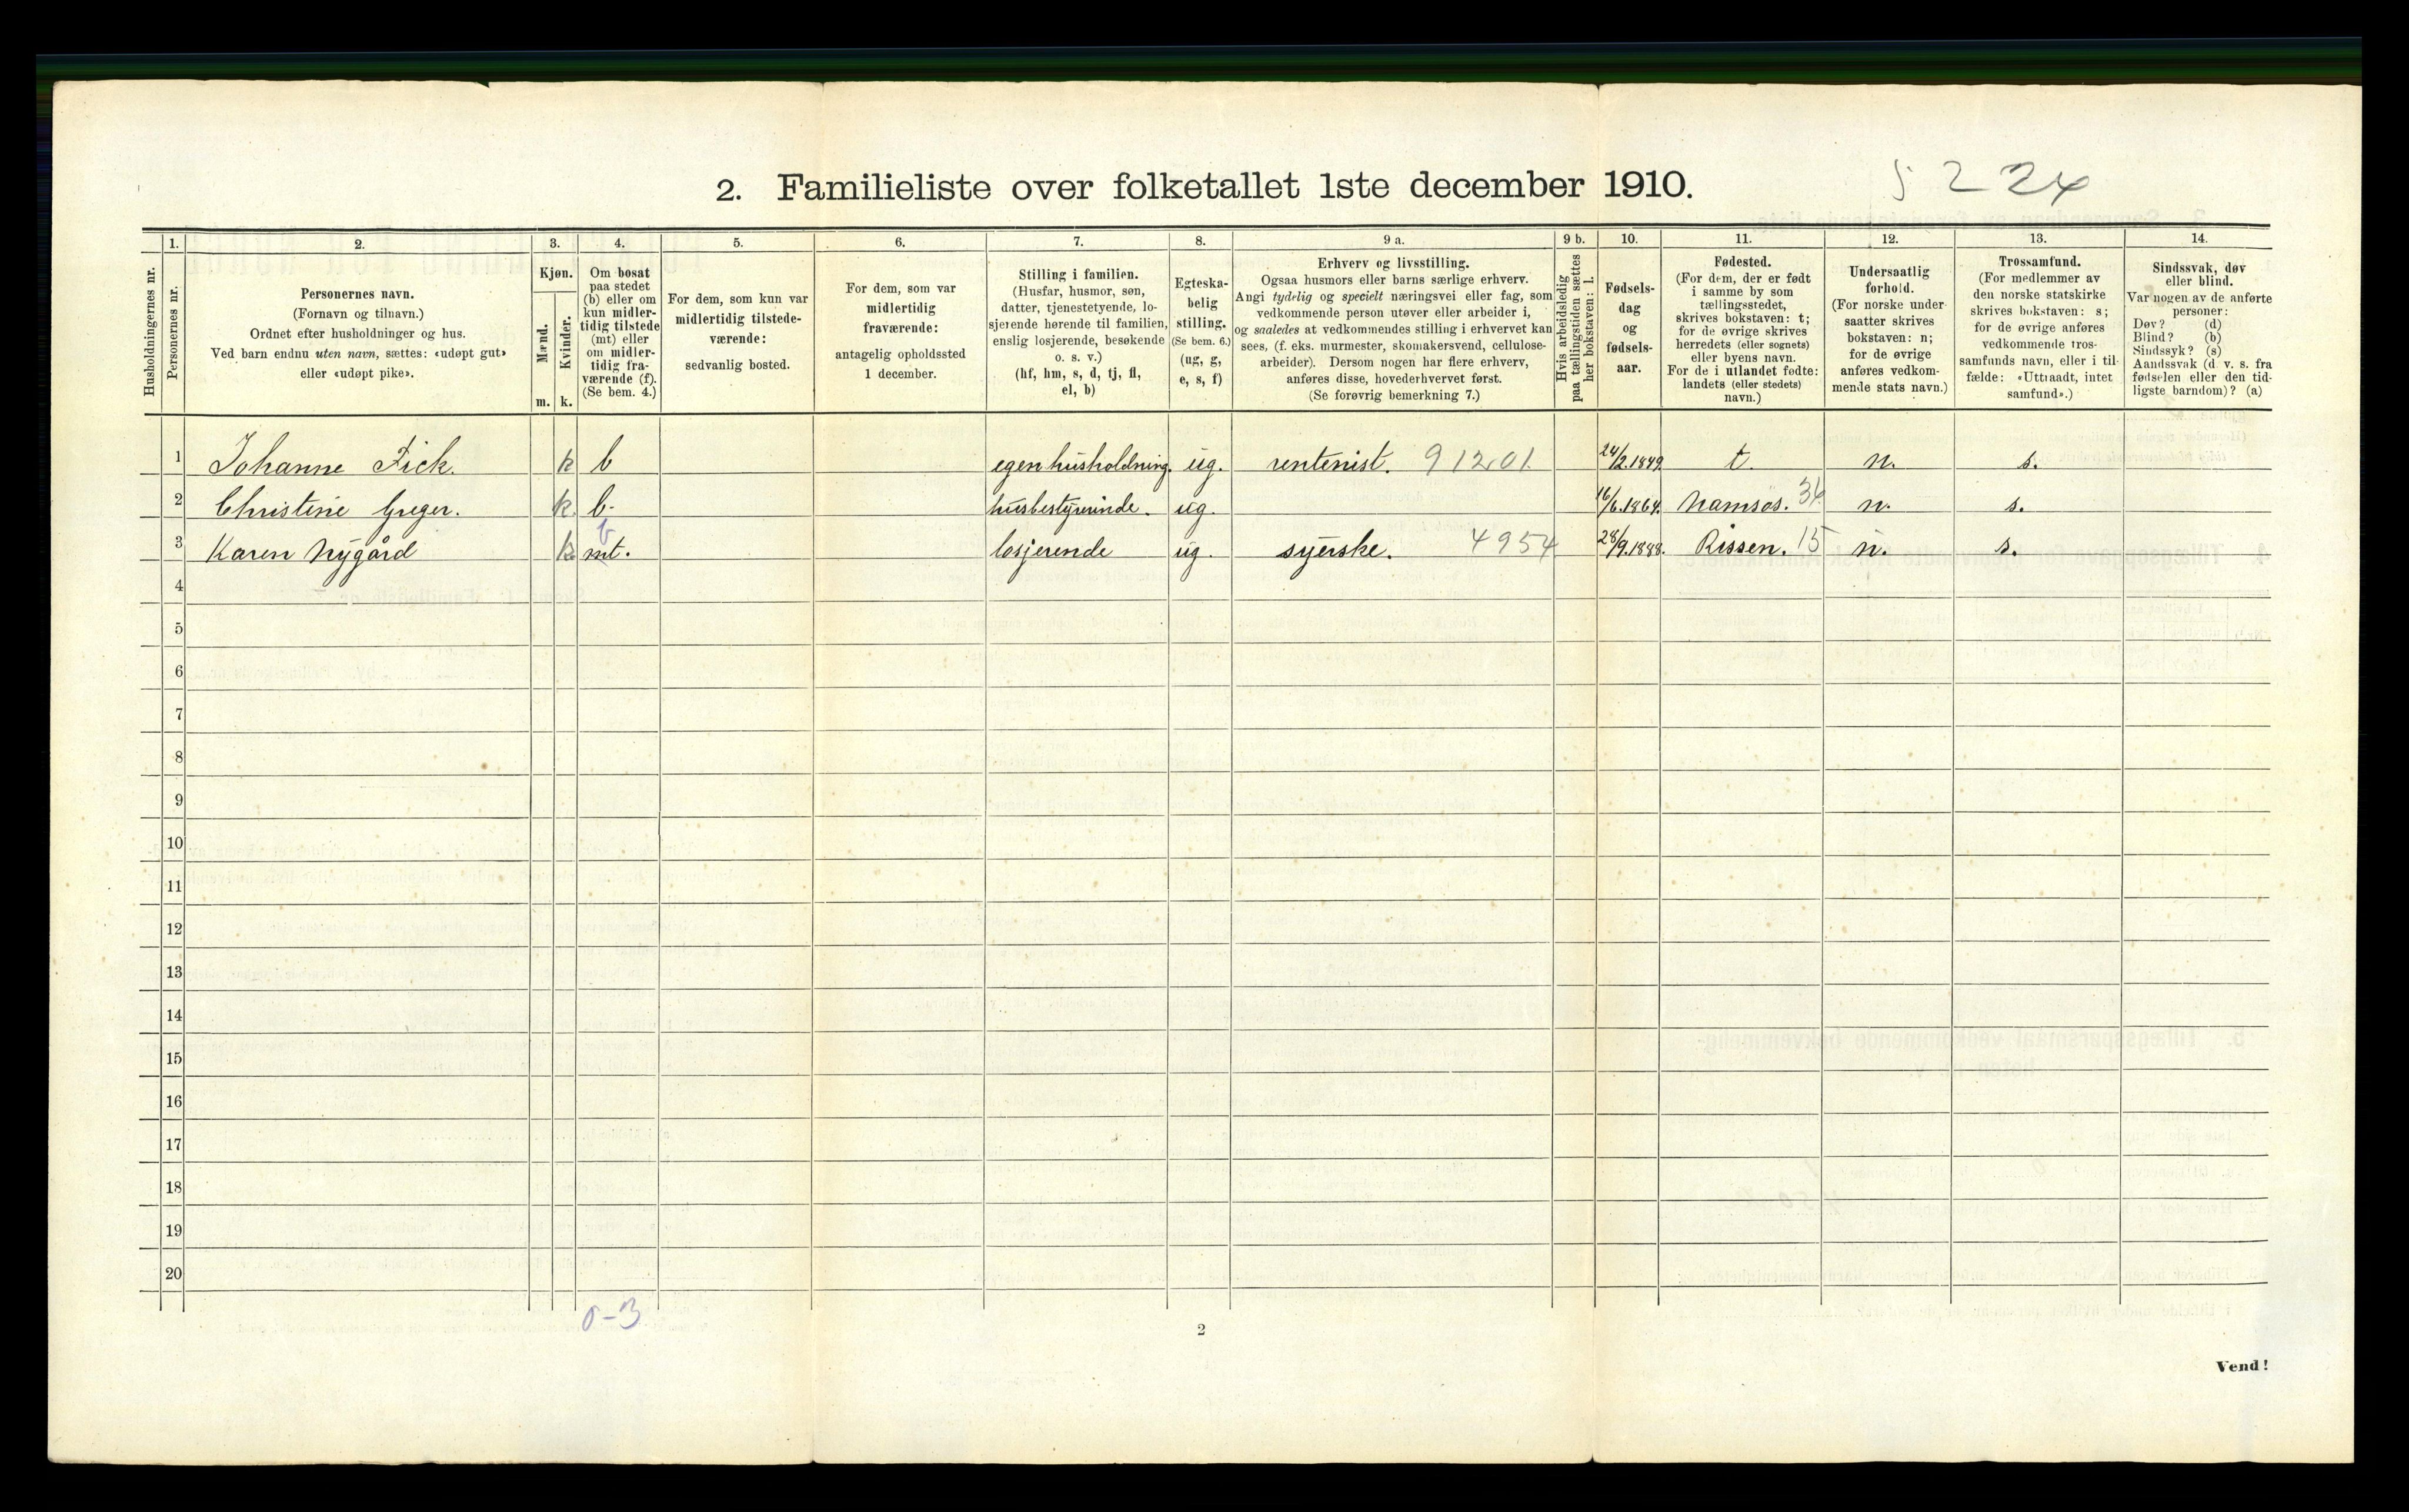 2. Familieliste over folketallet 1ste december 1910.
5 224
Husholdningernes nr.
1.
Personernes nr.
2.
Personernes navn.
(Fornavn og tilnavn.)
Ordnet efter husholdninger og hus.
Ved barn endnu uten navn, sættes: «udøpt gut»
eller «udøpt pike».
3.
Kjøn.
Mænd.
Kvinder.
m. k.
4.
Om bosat
paa stedet
(b) eller om
kun midler-
tidig tilstede
(mt) eller
om midler-
tidig fra-
værende (f).
(Se bem. 4.)
5.
For dem, som kun var
midlertidig tilstede-
værende:
sedvanlig bosted.
6.
For dem, som var
midlertidig
fraværende:
antagelig opholdssted
1 december.
7.
Stilling i familien.
(Husfar, husmor, søn,
datter, tjenestetyende, lo-
sjerende hørende til familien,
enslig losjerende, besøkende
o. s. v.)
(hf, hm, s, d, tj, fl,
el, b)
8.
Egteska-
belig
stilling.
(Se bem. 6.)
(ug, g,
e, s, f)
9 a.
Erhverv og livsstilling.
Ogsaa husmors eller barns særlige erhverv.
Angi tydelig og specielt næringsvei eller fag, som
vedkommende person utøver eller arbeider i,
og saaledes at vedkommendes stilling i erhvervet kan
sees, (f. eks. murmester, skomakersvend, cellulose-
arbeider). Dersom nogen har flere erhverv,
anføres disse, hovederhvervet først.
(Se forøvrig bemerkning 7.)
9 b.
Hvis arbeidsledig
paa tællingstiden sættes
her bokstaven: l.
10.
Fødsels-
dag
og
fødsels-
aar.
11.
Fødested.
(For dem, der er født
i samme by som
tællingsstedet,
skrives bokstaven: t;
for de øvrige skrives
herredets (eller sognets)
eller byens navn.
For de i utlandet fødte:
landets (eller stedets)
navn.)
12.
Undersaatlig
forhold.
(For norske under-
saatter skrives
bokstaven: n;
for de øvrige
anføres vedkom-
mende stats navn.)
13.
Trossamfund.
(For medlemmer av
den norske statskirke
skrives bokstaven: s;
for de øvrige anføres
vedkommende tros-
samfunds navn, eller i til-
fælde: «Uttraadt, intet
samfund».)
14.
Sindssvak, døv
eller blind.
Var nogen av de anførte
personer:
Døv? (d)
Blind? (b)
Sindssyk? (s)
Aandssvak (d. v. s. fra
fødselen eller den tid-
ligste barndom)? (a)
1 Johanne Fick. k b egen husholdning. ug. rentenist. 91201 24/2.1849. t. n. s.
2 Christine Greger. k. b. husbestyrerinde. ug. 16/6.1864. Namsos. 36 n. s.
b
3 Karen Nygård k. mt. losjerende ug. syerske. 4954 28/9.1888. Rissen. 15 n. s.
4
5
6
7
8
9
10
11
12
13
14
15
16
17
18
19
20
0-3
2
Vend!